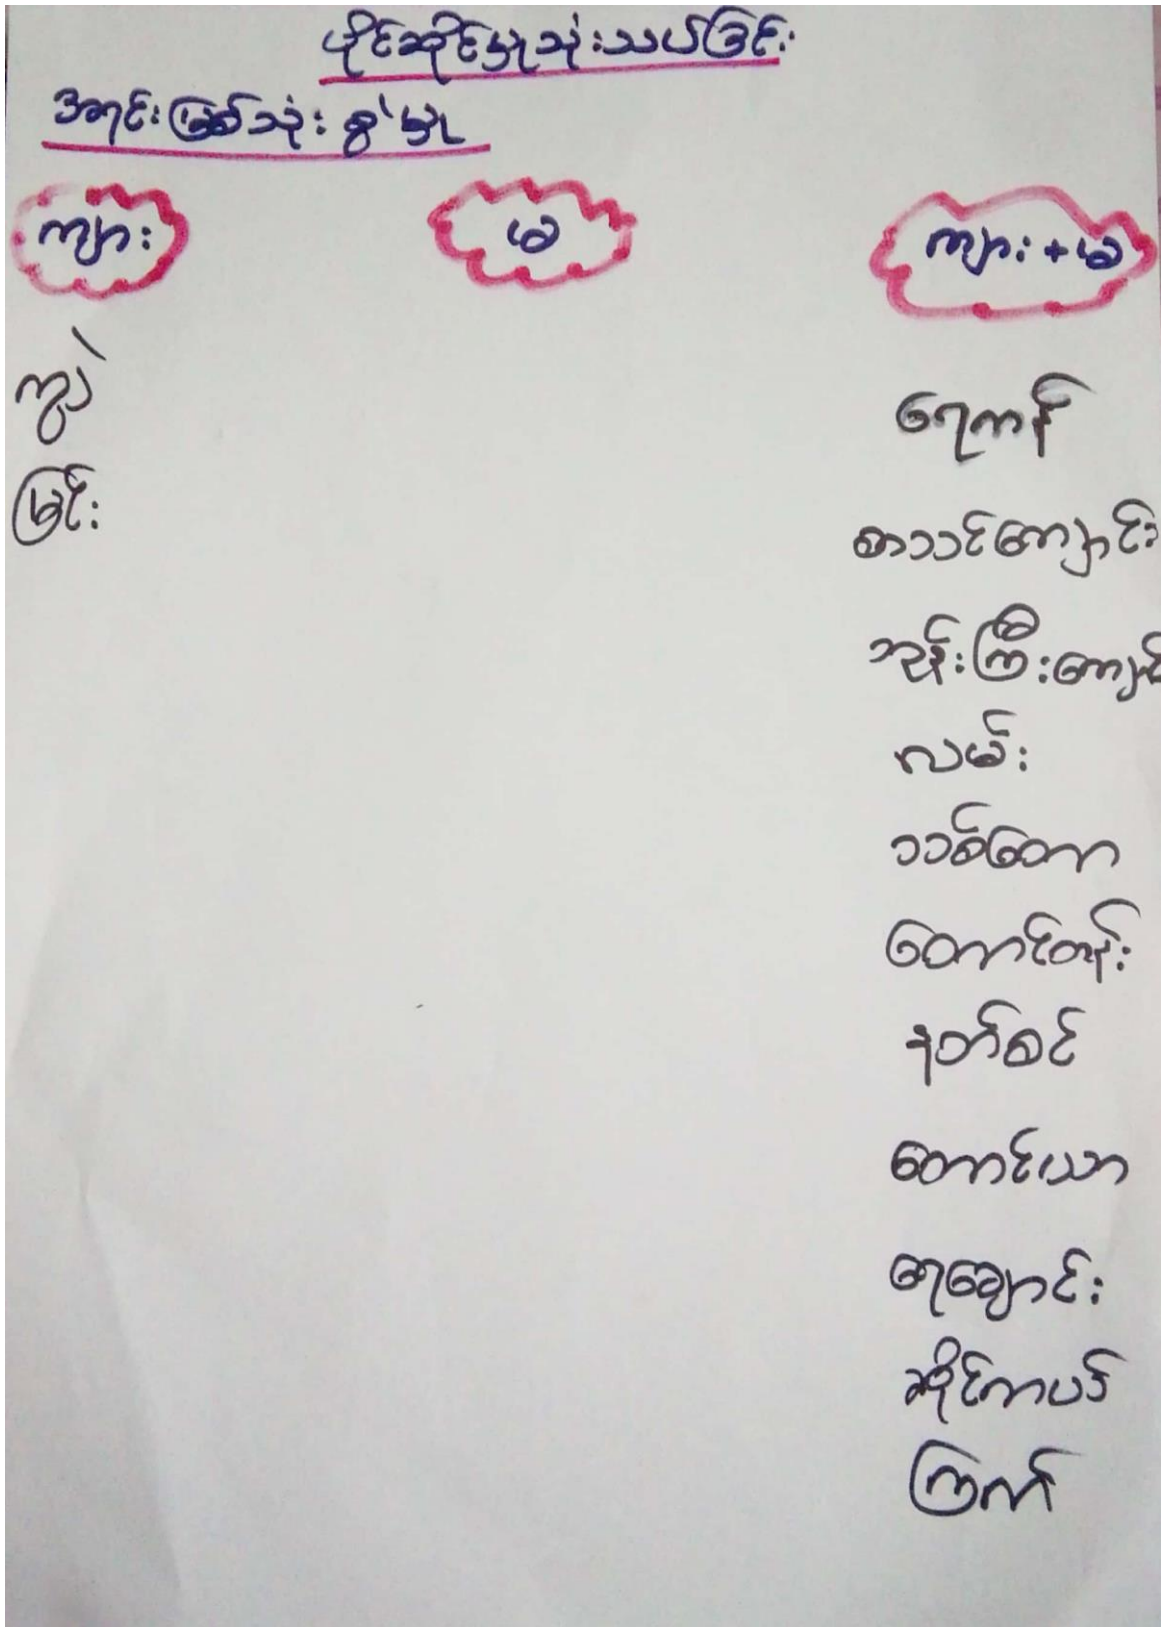 ပိုင်ဆိုင်မှုသုံးသပ်ခြင်း
အရင်းမြစ်သုံးစွဲမှု
ကျား မ ကျား + မ
ကျွဲ ရေကန်
မြင်း
စာသင်ကျောင်း
ဘုန်းကြီးကျောင်
လမ်း
သစ်တော
တောင်တန်း
နတ်စင်
တောင်ယာ
ရေချောင်း
ဆိုင်ကယ်
ကြက်